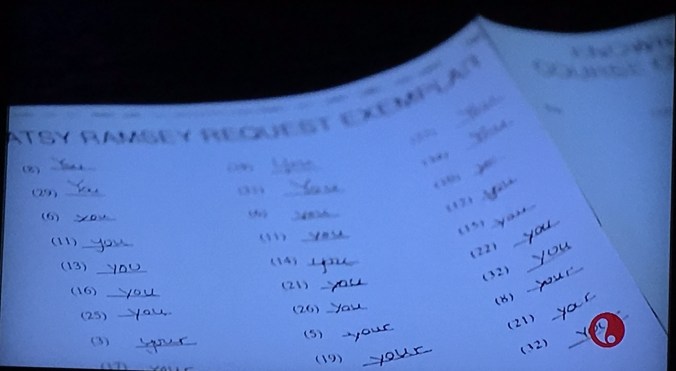 ATSY RAMSEY REQUEST EXEMPLAR
(8) You
(29) You
(6) you
(11) you
(13) you
(16) you
(25) you
(3) your
(17) your
You
You
you
(11) you
(14) you
(21) you
(26) you
(5) your
(19) your
you
(17) you
(15) you
(22) you
(32) you
(8) your
(21) your
(12)
COURSE